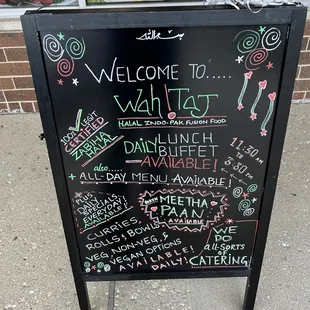 WELCOME TO.....
Wah! Taj
HALAL INDO-PAK FUSION FOOD
100%
CERTIFIED
ZABIHA
HALAL
DAILY LUNCH
BUFFET
AVAILABLE!
11:30 AM
TO
3:30 PM
also.....
+ ALL-DAY MENU AVAILABLE!
DAILY
SPECIALS
EVERYDAY
AVAILABLE
MEETHA
PAAN
AVAILABLE
CURRIES,
ROLLS & BOWLS
VEG, NON-VEG, &
VEGAN OPTIONS
AVAILABLE DAILY!
WE
DO
all-SORTS
OF
CATERING!